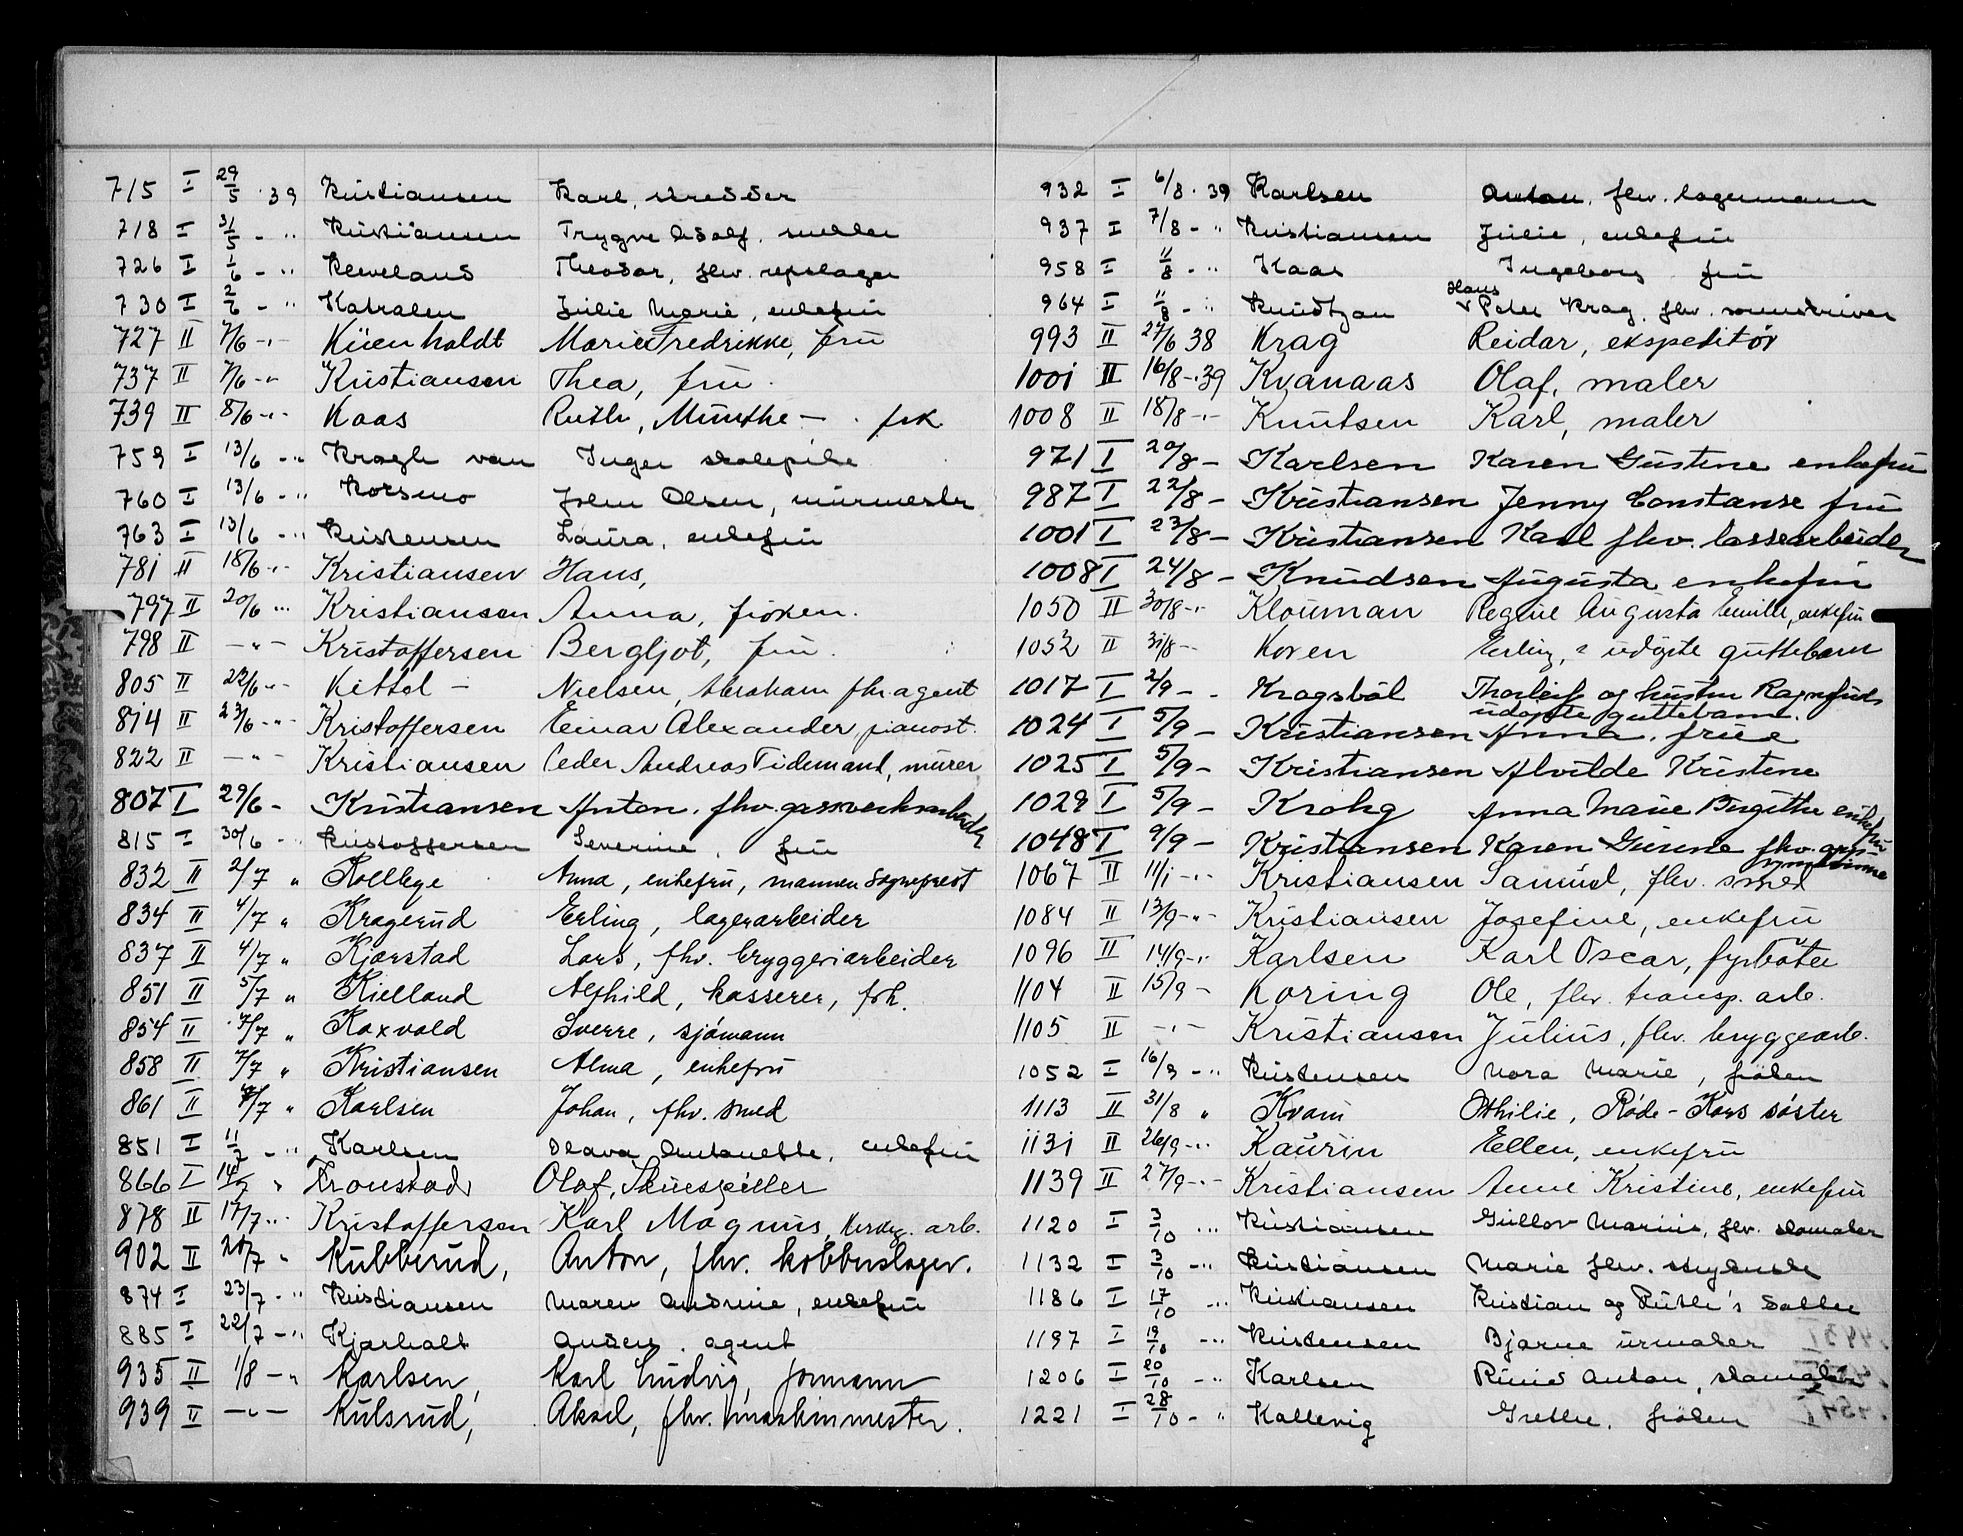 715 I 29/5 · 39 Kristiansen Karl, skredder
718 I 31/5 - " Kristiansen Trygve Adolf, snekker
726 I 1/6 - " Kleveland Theodor, fhv. repslager
730 I 2/6 - " Katralen Julie Marie, enkefru
727 II 7/6 - " Küenholdt Marie Fredrikke, fru
737 II 7/6 - " Kristiansen Thea, fru.
739 II 8/6 - " Kaas Ruth, Munthe - . frk
759 I 13/6 - " Kragh van Inger skolepike
760 I 13/6 - " Korsmo Joen Olsen, murmester
763 I 13/6 - " Kristensen Laura, enkefru
781 II 18/6 - " Kristiansen Hans,
797 II 20/6 " Kristiansen Anna, frøken.
798 II - " - Kristoffersen Bergljot, fru.
805 II 22/6 " - Kittel - Nielsen, Abraham fhv. agent
814 II 23/6 - " - Kristoffersen Einar Alexander, pianost.
822 II - " - Kristiansen Peder Andreas Tidemand, murer
807 I 29/6 - Kristiansen Anton. fhv. gassverksarbeider
815 I 30/6 - Kristoffersen Severine, fru
832 II 2/7 " Kolbye Anna, enkefru, mannen Sogneprest
834 II 4/7 " Kragerud Erling, lagerarbeider
837 II 4/7 " Kjærstad Lars, fhv. bryggeriarbeider
851 II 5/7 " Kielland Alfhild, kasserer, frk.
854 II 7/7 " Koxvold Sverre, sjømann
858 II 7/7 " Kristiansen Alma, enkefru
861 II 8/7 " Karlsen Johan, fhv. smed
851 I 11/7 - " Karlsen Olava Antonette, enkefru
866 I 14/7 " Kronstad, Olaf, Skuespiller
878 II 17/7 " Kristoffersen Karl Magnus, arb.
902 II 20/7 " Kubberud, Anton, fhv. kobberslager.
874 I 23/7 - " Kristiansen Maren Andrine, enkefru
885 I 22/7 - " Kjærholt Anders. agent
935 II 1/8 - " Karlsen, Karl Ludvig, formann
939 II - " - Kulsrud, Aksel, fhv. maskinmester.
932 I 6/8 · 39 Karlsen Anton, fhv. lagermann
937 I 7/8 - " Kristiansen Julie, enkefru
958 I 11/8 - " Kaas Ingeborg fru
964 I 11/8 - " Knudtzon Hans Peter Krag, fhv. sorenskriver
993 II 27/6 38 Krag Reidar, ekspeditør
1001 II 16/8 - 39 Kvanaas Olaf, maler
1008 II 18/8 - " - Knutsen Karl, maler
971 I 20/8 - Karlsen Karen Gustine enkefru
987 I 22/8 - Kristiansen Jenny Constanse fru
1001 I 23/8 - Kristiansen Karl fhv. lossearbeider
1008 I 24/8 - Knudsen Augusta enkefru
1050 II 30/8 - " Klouman Regine Augusta Emilie, enkefru
1052 II 31/8 - Koren Erling, s udøpte guttebarn
1017 I 2/9 - Kragsbøl Thorleif og hustru Ragnhilds udøpte guttebarn.
1024 I 5/9 - Kristiansen Anna. frue
1025 I 5/9 - Kristiansen Alvilde Kristine
1029 I 5/9 - Krohg Anna Marie Birgitte enkefru
1048 I 9/9 - Kristiansen Karen Gurine fhv.
1067 II 11/1 - " Kristiansen Samuel, fhv. smed
1084 II 13/9 - " - Kristiansen Josefine, enkefru
1096 II 14/9 - " Karlsen Karl Oscar, fyrbøter
1104 II 15/9 - Koring Ole, fhv. transp. arb.
1105 II - " - Kristiansen Julius, fhv. bryggearb.
1052 I 16/9 - " Kristensen Nora Marie, frøken
1113 II 31/8 " Kvam Othilie, Røde-Kors søster
1131 II 26/9 - " Kaurin Ellen, enkefru
1139 II 27/9 - " - Kristiansen Anne Kristine, enkefru
1120 I 3/10 " Kristiansen Gullov Marius, fhv. skomaker
1132 I 3/10 - " Kristiansen Marie fhv.
1186 I 17/10 - " Kristiansen Kristian og Ruth's datter
1197 I 19/10 - " Kristensen Bjarne urmaker
1206 I 20/10 - " Karlsen Anton, skomaker
1221 I 28/10 - " Kallevig Grethe, frøken